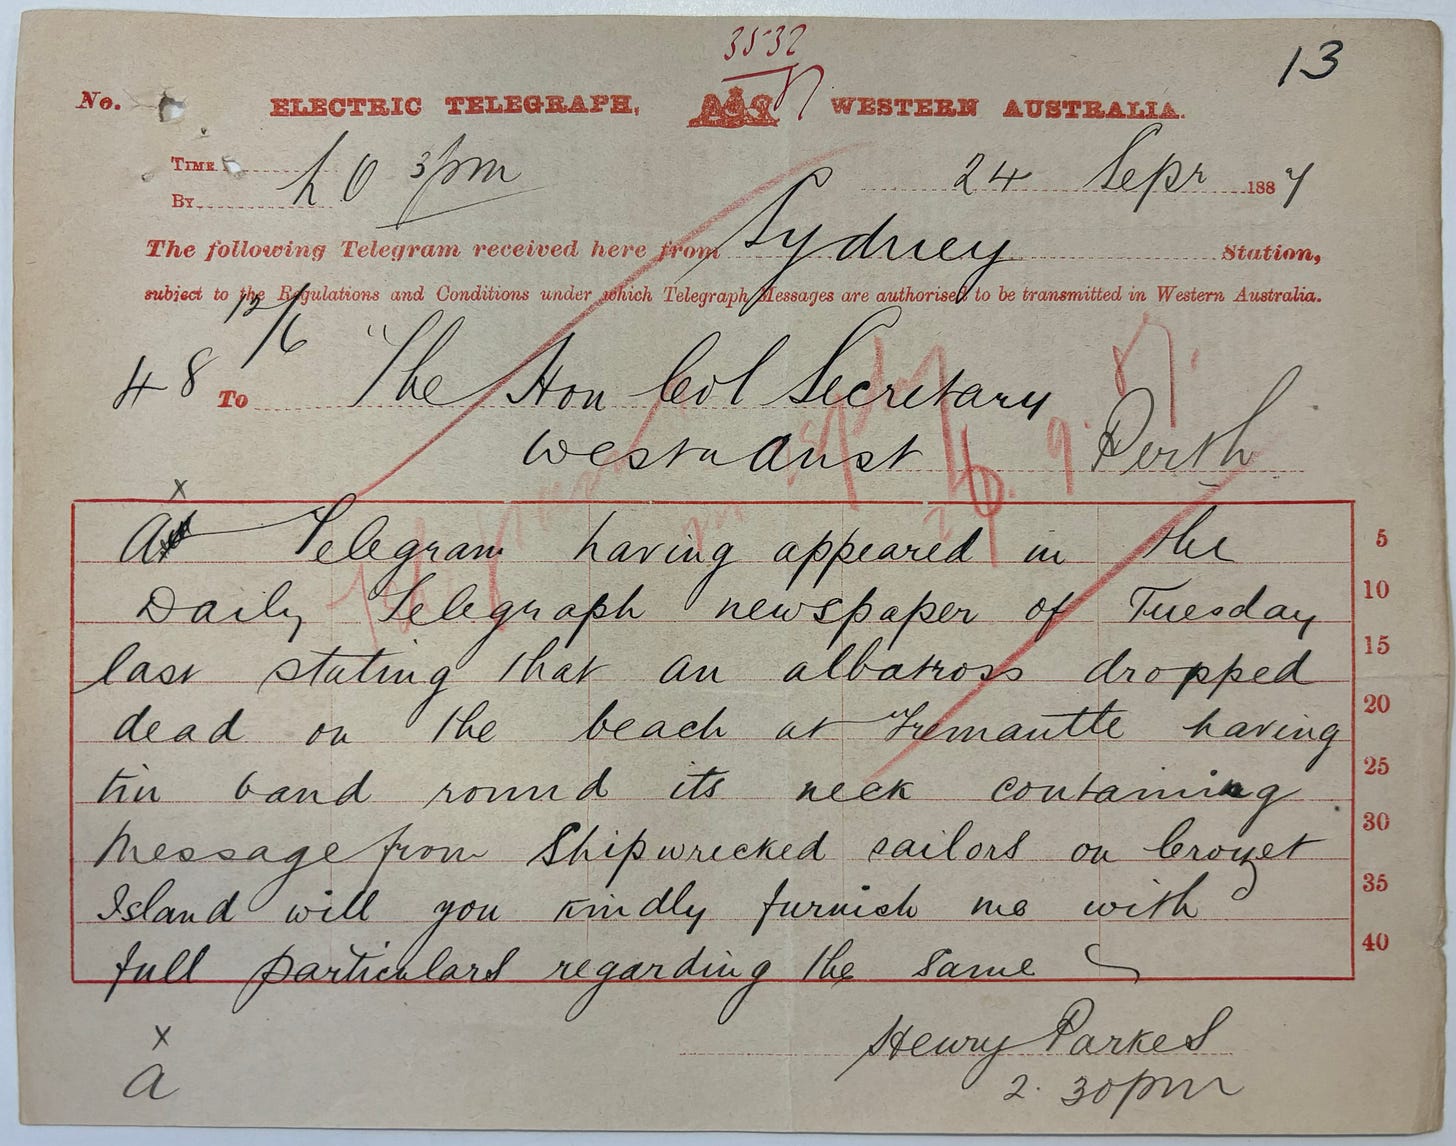 3532
13
No.
ELECTRIC TELEGRAPH, WESTERN AUSTRALIA.
TIME 3pm
24 Sepr 1887
BY
The following Telegram received here from Sydney Station,
subject to the Regulations and Conditions under which Telegraph Messages are authorised to be transmitted in Western Australia.
12/6
48 To "The Hon Col Secretary
Westn Aust Perth
x
A Telegram having appeared in the 5
Daily Telegraph newspaper of Tuesday 10
last stating that an albatross dropped 15
dead on the beach at Fremantle having 20
tin band round its neck containing 25
message from Shipwrecked sailors on Crozet 30
Island will you kindly furnish me with 35
full particulars regarding the same 40
Henry Parkes
x
a
2.30pm